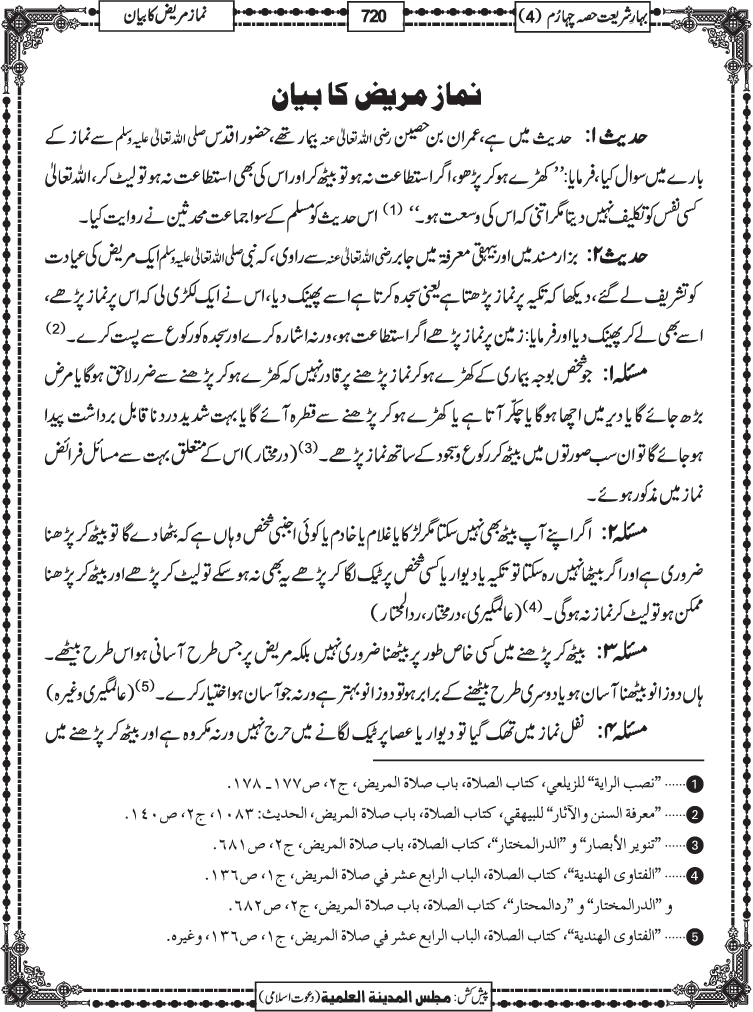 بہار شریعت حصہ چہارم (4)
720
نماز مریض کا بیان
نماز مریض کا بیان
حدیث ۱: حدیث میں ہے، عمران بن حصین رضی اللہ تعالیٰ عنہ بیمار تھے، حضور اقدس صلی اللہ تعالیٰ علیہ وسلم سے نماز کے
بارے میں سوال کیا، فرمایا: ’’ کھڑے ہو کر پڑھو، اگر استطاعت نہ ہو تو بیٹھ کر اور اس کی بھی استطاعت نہ ہو تو لیٹ کر، اللہ تعالیٰ
کسی نفس کو تکلیف نہیں دیتا مگر اتنی کہ اس کی وسعت ہو۔‘‘ (1) اس حدیث کو مسلم کے سوا جماعت محدثین نے روایت کیا۔
حدیث ۲: بزار مسند میں اور بیہقی معرفۃ میں جابر رضی اللہ تعالیٰ عنہ سے راوی، کہ نبی صلی اللہ تعالیٰ علیہ وسلم ایک مریض کی عیادت
کو تشریف لے گئے، دیکھا کہ تکیہ پر نماز پڑھتا ہے یعنی سجدہ کرتا ہے اسے پھینک دیا، اس نے ایک لکڑی لی کہ اس پر نماز پڑھے،
اسے بھی لے کر پھینک دیا اور فرمایا: زمین پر نماز پڑھے اگر استطاعت ہو، ورنہ اشارہ کرے اور سجدہ کو رکوع سے پست کرے۔ (2)
مسئلہ ۱: جو شخص بوجہ بیماری کے کھڑے ہو کر نماز پڑھنے پر قادر نہیں کہ کھڑے ہو کر پڑھنے سے ضرر لاحق ہوگا یا مرض
بڑھ جائے گا یا دیر میں اچھا ہوگا یا چکّر آتا ہے یا کھڑے ہو کر پڑھنے سے قطرہ آئے گا یا بہت شدید درد ناقابل برداشت پیدا
ہو جائے گا تو ان سب صورتوں میں بیٹھ کر رکوع و سجود کے ساتھ نماز پڑھے۔ (3) (درمختار) اس کے متعلق بہت سے مسائل فرائض
نماز میں مذکور ہوئے۔
مسئلہ ۲: اگر اپنے آپ بیٹھ بھی نہیں سکتا مگر لڑکا یا غلام یا خادم یا کوئی اجنبی شخص وہاں ہے کہ بٹھا دے گا تو بیٹھ کر پڑھنا
ضروری ہے اور اگر بیٹھا نہیں رہ سکتا تو تکیہ یا دیوار یا کسی شخص پر ٹیک لگا کر پڑھے یہ بھی نہ ہو سکے تو لیٹ کر پڑھے اور بیٹھ کر پڑھنا
ممکن ہو تو لیٹ کر نماز نہ ہوگی۔ (4) (عالمگیری، درمختار، ردالمحتار)
مسئلہ ۳: بیٹھ کر پڑھنے میں کسی خاص طور پر بیٹھنا ضروری نہیں بلکہ مریض پر جس طرح آسانی ہو اس طرح بیٹھے۔
ہاں دوزانو بیٹھنا آسان ہو یا دوسری طرح بیٹھنے کے برابر ہو تو دوزانو بہتر ہے ورنہ جو آسان ہو اختیار کرے۔ (5) (عالمگیری وغیرہ)
مسئلہ ۴: نفل نماز میں تھک گیا تو دیوار یا عصا پر ٹیک لگانے میں حرج نہیں ورنہ مکروہ ہے اور بیٹھ کر پڑھنے میں
1 ...... "نصب الراية" للزيلعي، كتاب الصلاة، باب صلاة المريض، ج٢، ص١٧٧ـ ١٧٨.
2 ...... "معرفة السنن والآثار" للبيهقي، كتاب الصلاة، باب صلاة المريض، الحديث: ١٠٨٣، ج٢، ص١٤٠.
3 ...... "تنوير الأبصار" و "الدرالمختار"، كتاب الصلاة، باب صلاة المريض، ج٢، ص٦٨١.
4 ...... "الفتاوى الهندية"، كتاب الصلاة، الباب الرابع عشر في صلاة المريض، ج١، ص١٣٦.
و "الدرالمختار" و "ردالمحتار"، كتاب الصلاة، باب صلاة المريض، ج٢، ص٦٨٢.
5 ...... "الفتاوى الهندية"، كتاب الصلاة، الباب الرابع عشر في صلاة المريض، ج١، ص١٣٦، وغيره.
پیش کش: مجلس المدينة العلمية (دعوت اسلامی)